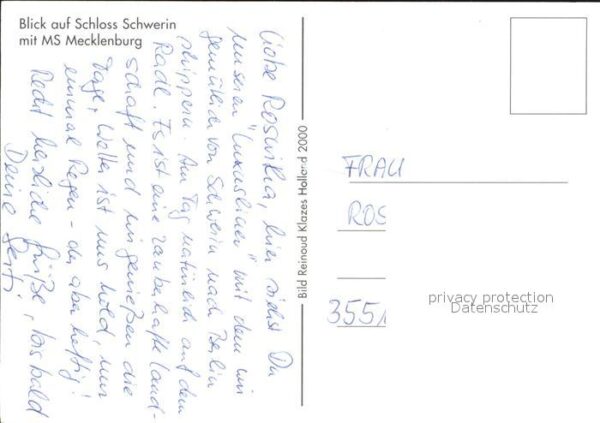 Blick auf Schloss Schwerin
mit MS Mecklenburg
Liebe Roswitha, hier siehst Du
unseren "Luxusliner" mit dem wir
gemütlich von Schwerin nach Berlin
schippern. Am Tag natürlich auf dem
Radl. Es ist eine zauberhafte Land-
schaft und wir genießen die
Tage, Wetter ist uns hold, nur
einmal Regen - der aber heftig!
Recht herzliche Grüße, bis bald
Deine
Bild Reinoud Klazes Holland 2000
FRAU
ROS
355
privacy protection
Datenschutz